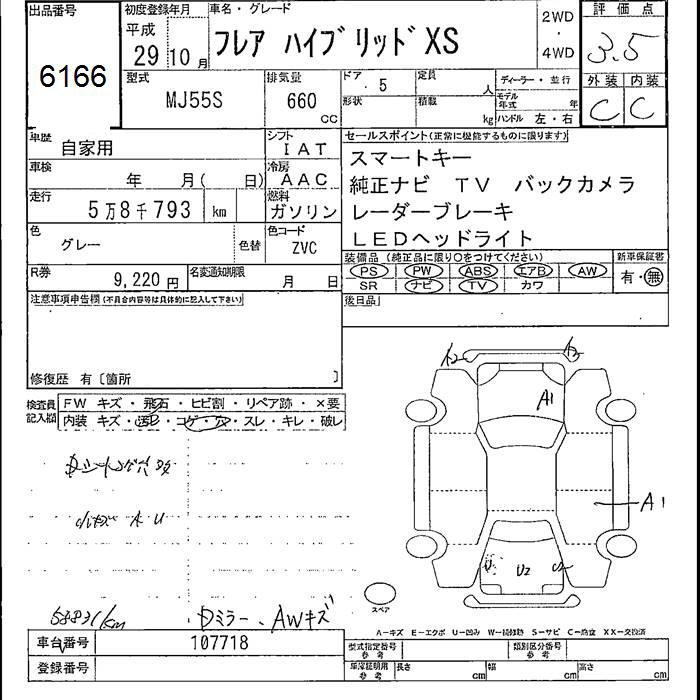 出品番号
6166
初度登録年月
平成
29 10 月
車名・グレード
フレア ハイブリッド XS
2WD
・
4WD
評価点
3.5
外装 内装
C C
型式
MJ55S
排気量
660
CC
ドア
5
定員
人
形状
積載
kg
ディーラー・並行
モデル年式
年
ハンドル 左・右
車歴
自家用
シフト
IAT
車検
年 月( 日)
冷房
AAC
走行
5万8千793 km
燃料
ガソリン
色
グレー
色替
色コード
ZVC
R券
9,220 円
名変通知期限
月 日
セールスポイント(正常に機能するものに限ります)
スマートキー
純正ナビ TV バックカメラ
レーダーブレーキ
LEDヘッドライト
装備品 (純正品に限り○をつけてください)
PS PW ABS エアB AW
SR ナビ TV カワ
新車保証書
有・無
後日品
注意事項申告欄(不具合内容等は具体的に記入して下さい)
修復歴 有〔箇所 〕
検査員記入欄
FW キズ・飛石・ヒビ割・リペア跡・×要
内装 キズ・汚れ・コゲ・穴・スレ・キレ・破レ
A2
A1
A1
U2
58831km
Dミラー、AWキズ
スペア
A―キズ E―エクボ U―凹み W―補修跡 S―サビ C―腐食 XX―交換済
車台番号
107718
登録番号
型式指定番号
参考
類別区分番号
参考
車庫証明用
参考
長さ cm
幅 cm
高さ cm